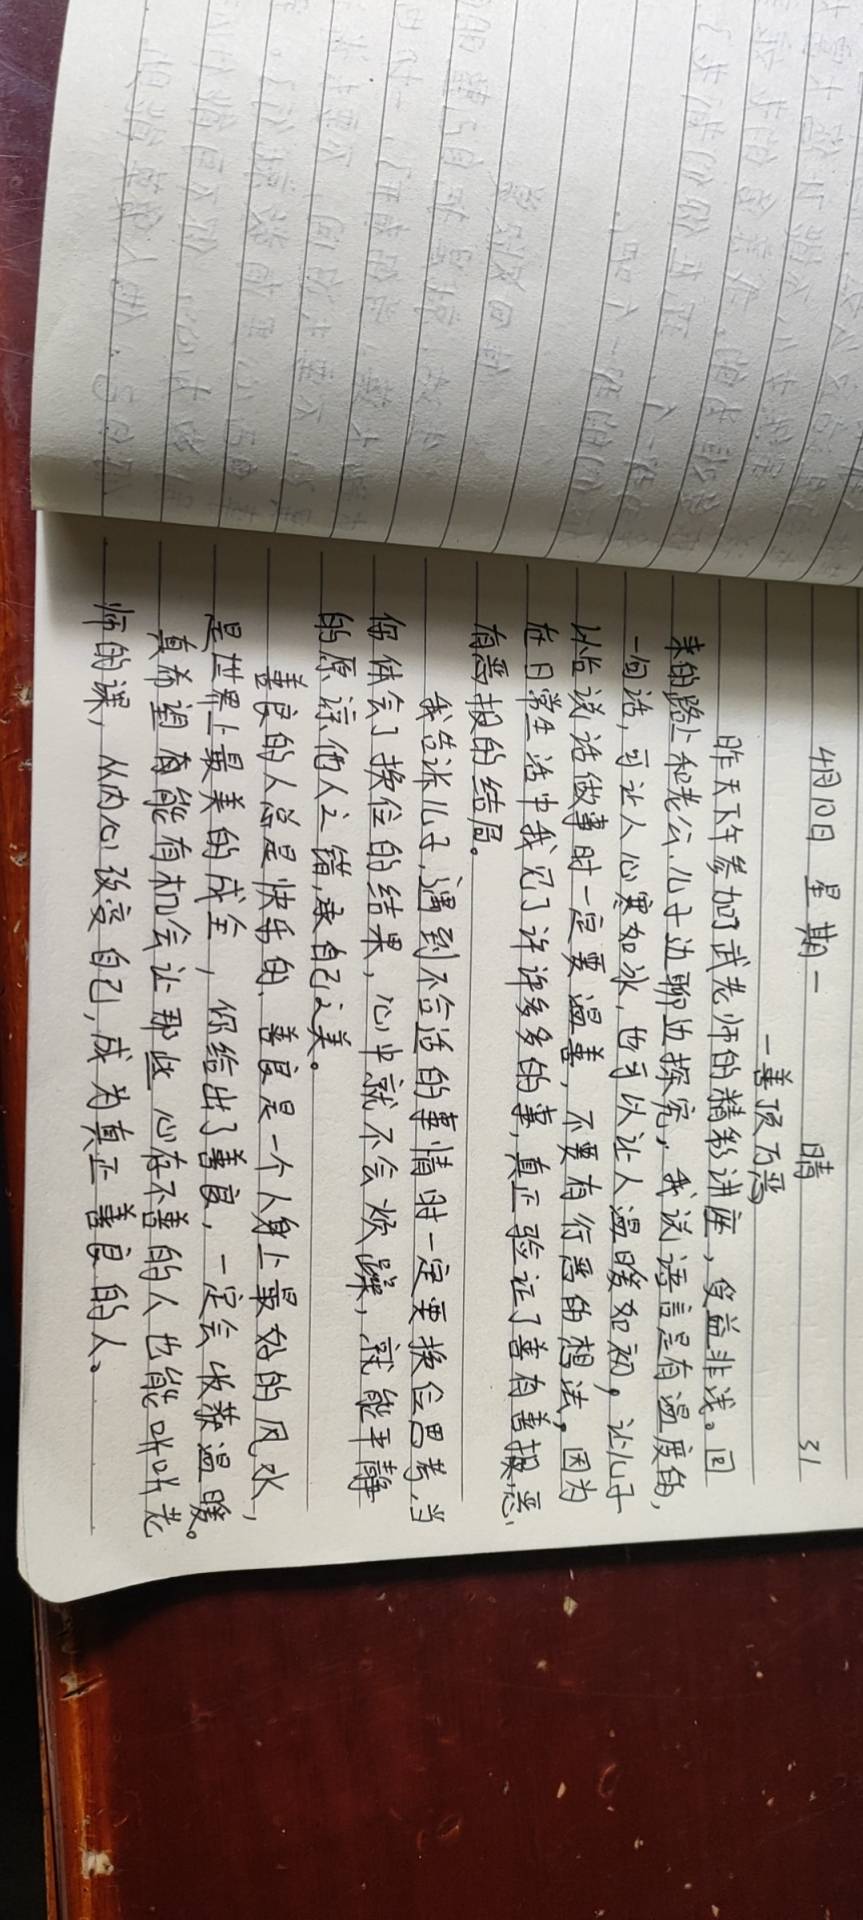 4月10日 星期一 晴 31
一善顶万恶
昨天下午参加了武老师的精彩讲座，受益非浅。回
来的路上和老公、儿子边聊边探究，我说语言是有温度的，
一句话，可让人心寒如冰，也可以让人温暖如初，让儿子
以后说话做事时一定要温善，不要有行恶的想法，因为
在日常生活中我见了许许多多的事，真正验证了善有善报，恶
有恶报的结局。
我告诉儿子，遇到不合适的事情时一定要换位思考，当
你体会了换位的结果，心中就不会烦躁，就能平静
的原谅他人之错，承自己之美。
善良的人总是快乐的，善良是一个人身上最好的风水，
是世界上最美的成全，你给出了善良，一定会收获温暖。
真希望有能有机会让那些心存不善的人也能听听老
师的课，从内心改变自己，成为真正善良的人。